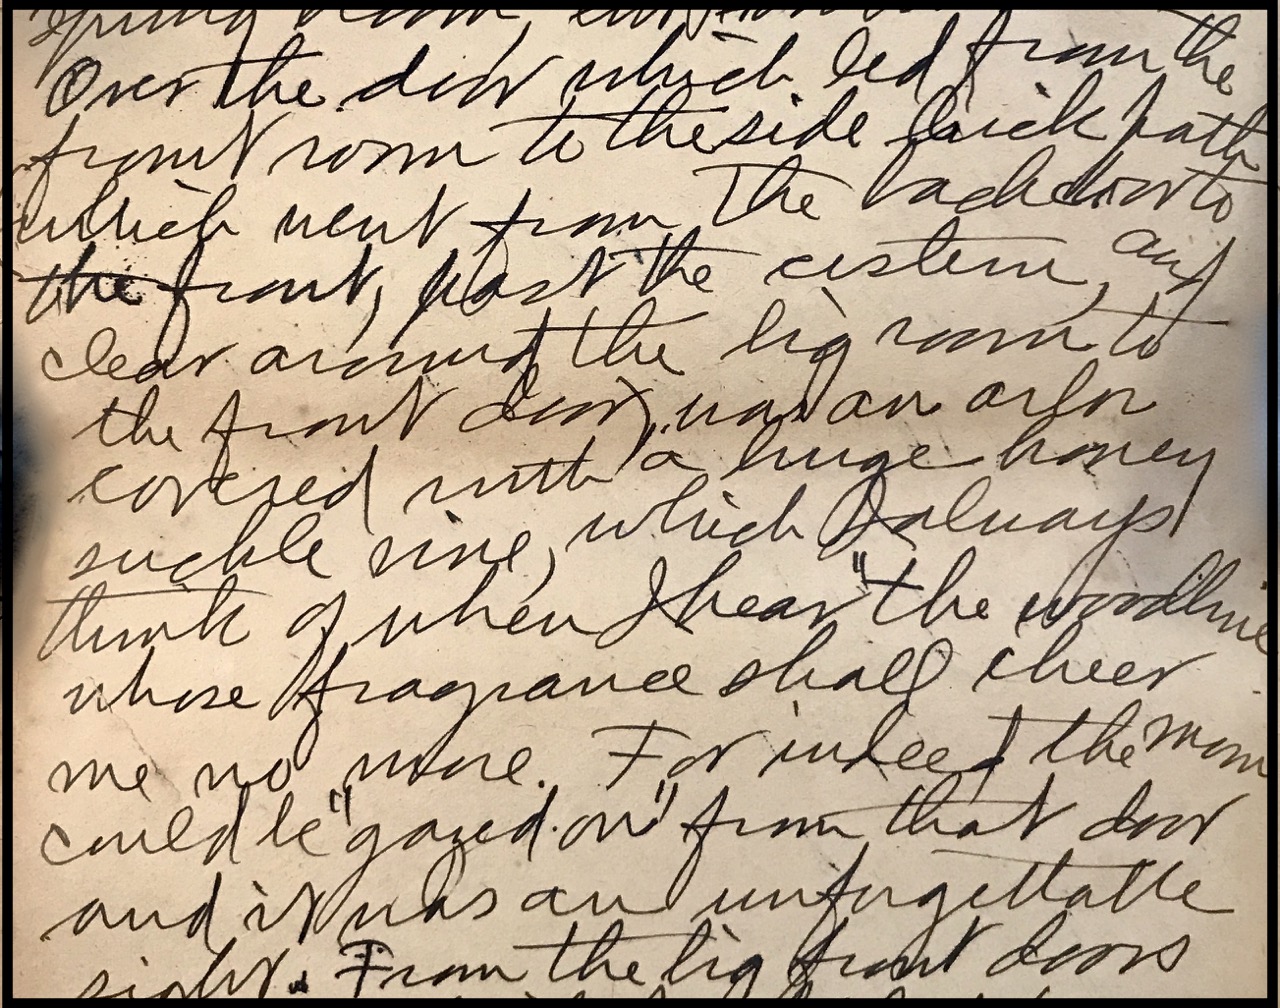 spring bloom,
Over the door which led from the
front room to the side brick path
which went from the back door to
the front, past the cistern, and
clear around the big room to
the front door), was an arbor
covered with a huge honey
suckle vine, which I always
think of when I hear "the woodbine
whose fragrance shall cheer
me no more. For indeed the moon
could be "gazed on" from that door
and it was an unforgettable
sight. From the big front doors